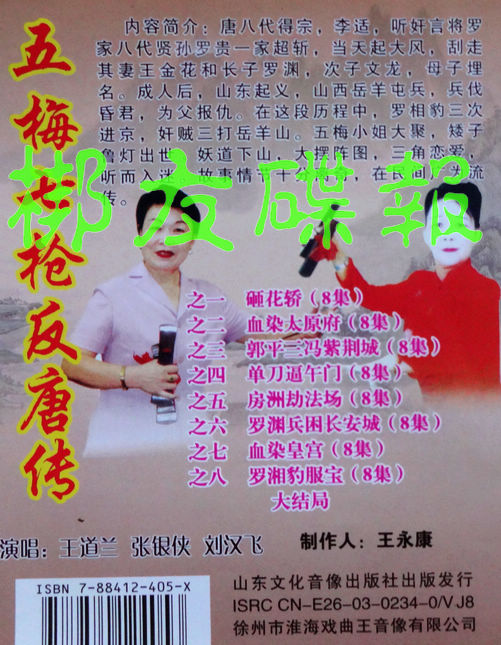 五梅七枪反唐传
内容简介：唐八代得宗，李适，听奸言将罗
家八代贤孙罗贵一家超斩，当天起大风，刮走
其妻王金花和长子罗渊，次子文龙，母子埋
名。成人后，山东起义，山西岳羊屯兵，兵伐
昏君，为父报仇。在这段历程中，罗相豹三次
进京，奸贼三打岳羊山。五梅小姐大聚，矮子
鲁灯出世，妖道下山，大摆阵图，三角恋爱，
听而入迷。故事情节十分离奇，在民间广为流
传。
梆友碟報
之一 砸花轿（8集）
之二 血染太原府（8集）
之三 郭平三冯紫荆城（8集）
之四 单刀逼午门（8集）
之五 房洲劫法场（8集）
之六 罗渊兵困长安城（8集）
之七 血染皇宫（8集）
之八 罗湘豹服宝（8集）
大结局
演唱：王道兰 张银侠 刘汉飞 制作人：王永康
ISBN 7-88412-405-X
山东文化音像出版社出版发行
ISRC CN-E26-03-0234-0/V.J8
徐州市淮海戏曲王音像有限公司